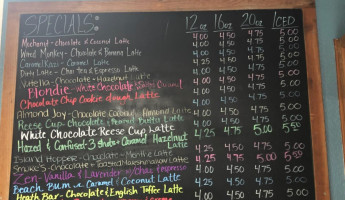 SPECIALS: 12oz 16oz 20oz ICED
Mochanut - chocolate & Coconut Latte 4.00 4.50 4.75 5.00
Wired Monkey - Chocolate & Banana Latte 4.00 4.50 4.75 5.00
Caramel Latte 4.00 4.50 4.75 5.00
Dirty Latte - Chai Tea & Espresso Latte 4.00 4.50 4.75 5.00
Chocolate - Hazelnut Latte 4.00 4.50 4.75 5.00
Blondie - White Chocolate Caramel 4.00 4.50 4.75 5.00
Chocolate Chip Cookie dough Latte 4.00 4.50 4.75 5.00
Almond Joy - Chocolate Coconut Almond Latte 4.00 4.50 4.75 5.00
Reese Cup - Chocolate & Peanut Butter Latte 4.00 4.50 4.75 5.00
White Chocolate Reese Cup Latte 4.25 4.75 5.00
Hazed and Confused - 3 shots - Caramel Hazelnut Latte
Island Hopper - Chocolate - Latte
Smores - Chocolate - Toasted Marshmallow Latte
Zen - Vanilla & Lavender w/ Chai & Espresso
Beach Bum - Caramel & Coconut Latte 4.00 4.50 4.75 5.00
Heath Bar - Chocolate & English Toffee Latte 4.00 4.50 4.75 5.00